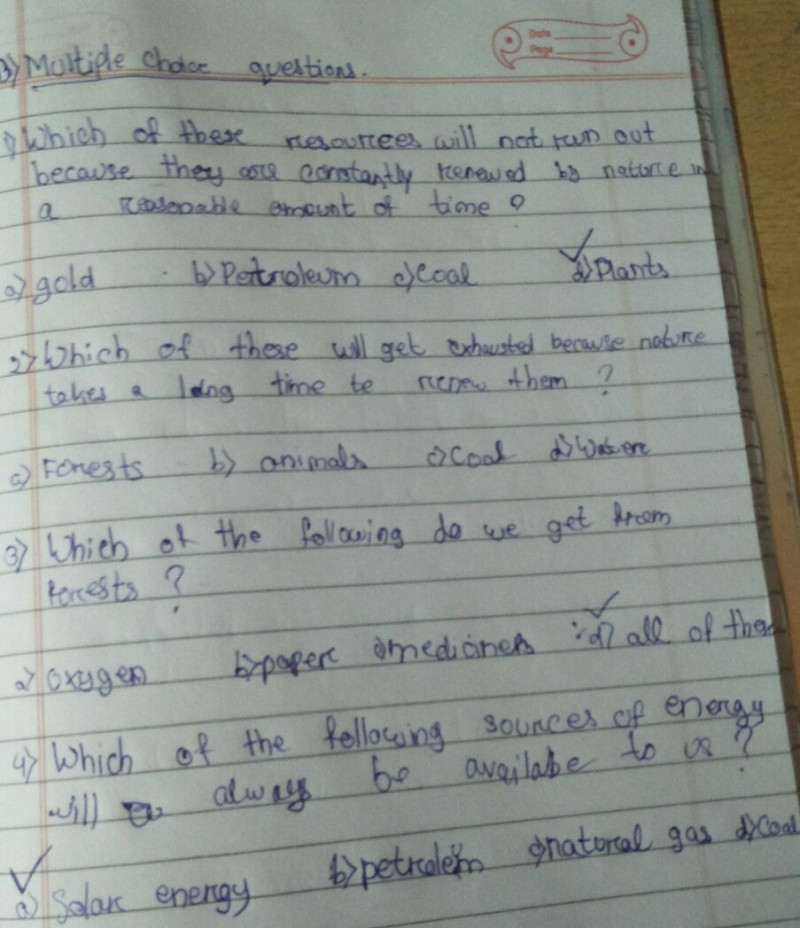 Date
Page
3) Multiple choice questions.
1) Which of these resources will not run out
because they are constantly renewed by nature in
a reasonable amount of time ?
a) gold b) Petroleum c) Coal d) Plants
2) Which of these will get exhausted because nature
takes a long time to renew them ?
a) Forests b) animals c) Coal d) Water
3) Which of the following do we get from
forests ?
a) oxygen b) paper c) medicines d) all of these
4) Which of the following sources of energy
will always be availabe to us ?
a) Solar energy b) petroleum c) natural gas d) Coal